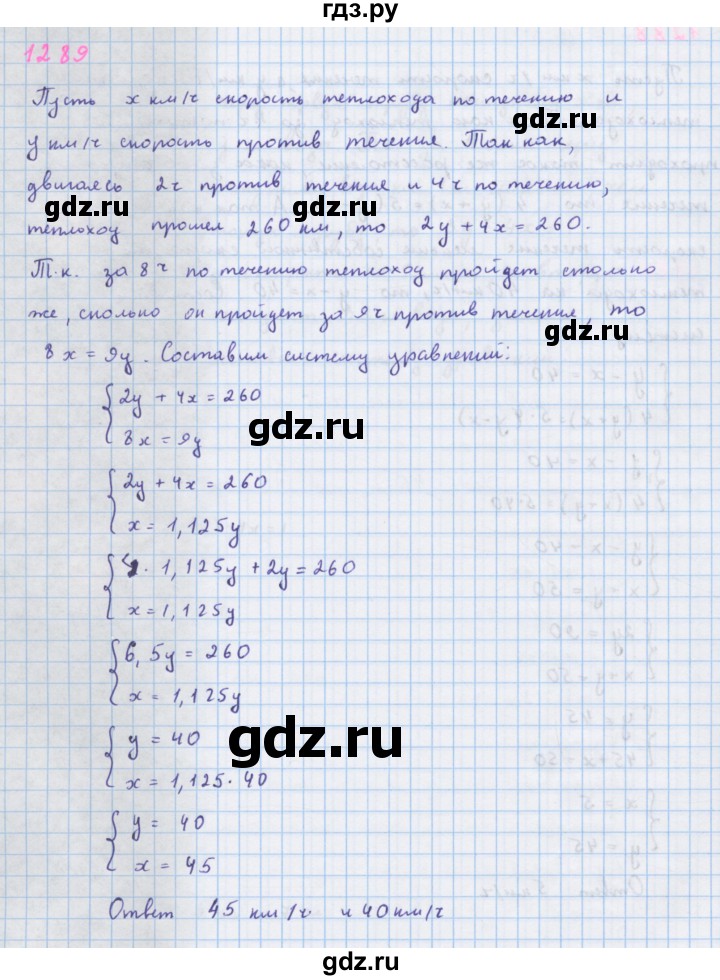 гдз.ру
1289
Пусть x км/ч скорость теплохода по течению и
gdz.ru
y км/ч скорость против течения. Так как,
двигаясь 2ч против течения и 4ч по течению,
gdz.ru gdz.ru
теплоход прошел 260 км, то 2y + 4x = 260.
Т.к. за 8 ч по течению теплоход пройдет столько
же, сколько он пройдет за 9ч против течения, то
gdz.ru
8x = 9y. Составим систему уравнений:
2y + 4x = 260
8x = 9y
gdz.ru
2y + 4x = 260
x = 1,125y
4 · 1,125y + 2y = 260
x = 1,125y
6,5y = 260
x = 1,125y
gdz.ru
y = 40
x = 1,125 · 40
y = 40
x = 45
Ответ 45 км/ч и 40 км/ч
gdz.ru